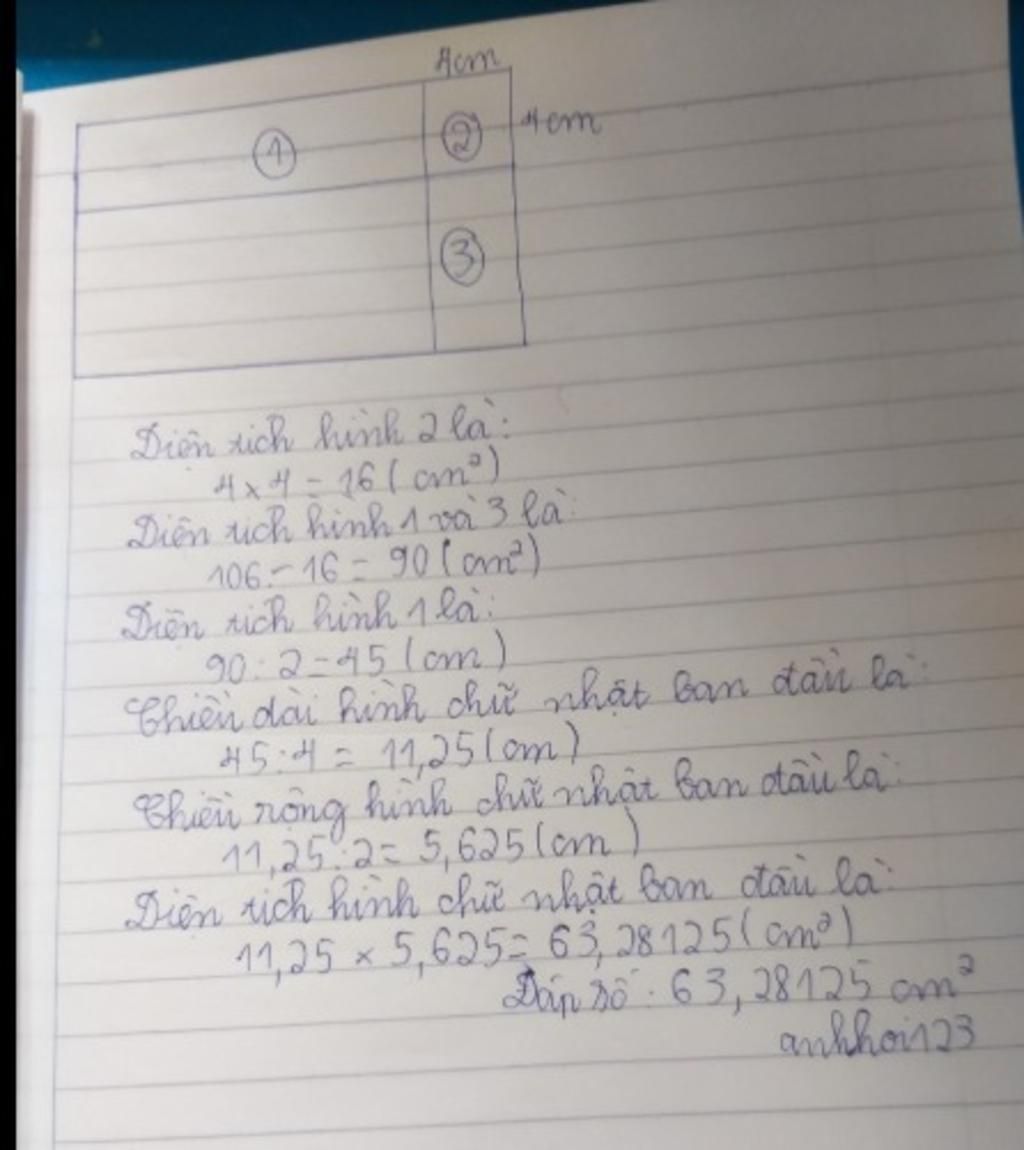 4cm
4cm
1
2
3
Diện tích hình 2 là:
4 x 4 = 16 (cm²)
Diện tích hình 1 và 3 là:
106 - 16 = 90 (cm²)
Diện tích hình 1 là:
90 : 2 = 45 (cm)
Chiều dài hình chữ nhật ban đầu là:
45 : 4 = 11,25 (cm)
Chiều rộng hình chữ nhật ban đầu là:
11,25 : 2 = 5,625 (cm)
Diện tích hình chữ nhật ban đầu là:
11,25 x 5,625 = 63,28125 (cm²)
Đáp số: 63,28125 cm²
anhhoi123